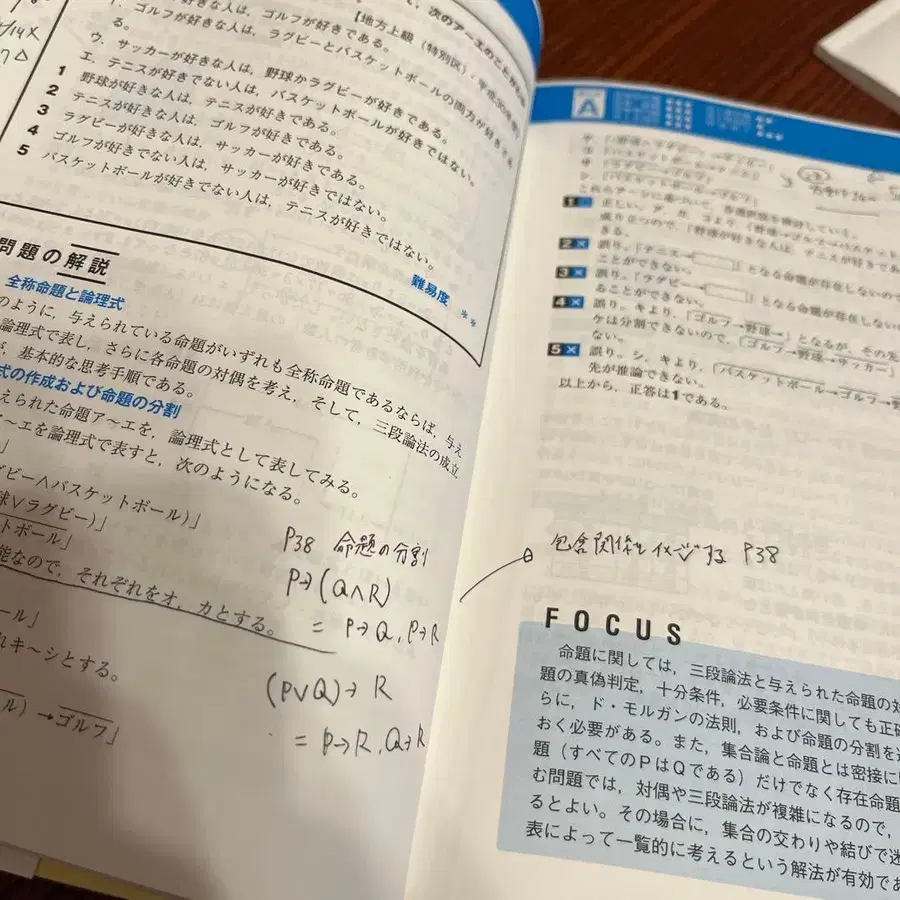 次のア～エのことが
【地方上級（特別区）・平成
ゴルフが好きである。
イ．ゴルフが好きな人は，ラグビーとバスケットボールの両方が好きである。
ウ．サッカーが好きな人は，野球かラグビーが好きである。
エ．テニスが好きでない人は，バスケットボールが好きではない。
1 野球が好きな人は，テニスが好きである。
2 テニスが好きな人は，ゴルフが好きである。
3 ラグビーが好きな人は，サッカーが好きである。
4 ゴルフが好きでない人は，サッカーが好きではない。
5 バスケットボールが好きでない人は，テニスが好きではない。
問題の解説
難易度 **
全称命題と論理式
のように，与えられている命題がいずれも全称命題であるならば，与え
論理式で表し，さらに各命題の対偶を考え，そして，三段論法の成立
が，基本的な思考手順である。
式の作成および命題の分割
えられた命題ア～エを，論理式として表してみる。
ア～エを論理式で表すと，次のようになる。
」
グビー∧バスケットボール)」
球∨ラグビー)」
ットボール」
能なので，それぞれをオ，カとする。
ール」
れキ～シとする。
ル) →ゴルフ」
P38 命題の分割
P→(Q∧R)
= P→Q, P→R
(P∨Q)→R
= P→R, Q→R
A
1
正しい。
成り立つので，「野球が好きな人は テニスが好きであ
きる。
2 × 誤り。「テニス→ 」となる命題が存在しないので
ことができない。
3 × 誤り。「ラグビー→ 」となる命題が存在しない
ることができない。
4 × 誤り。キより，「ゴルフ→野球→ 」となるが，その先
ケは分割できないので，「ゴルフ→野球→サッカー」
ない。
5 × 誤り。シ，キより，「バスケットボール→ゴルフ→野
先が推論できない。
以上から，正答は1である。
包含関係をイメージする P38
FOCUS
命題に関しては，三段論法と与えられた命題の対
題の真偽判定，十分条件，必要条件に関しても正確
らに，ド・モルガンの法則，および命題の分割を
おく必要がある。また，集合論と命題とは密接に
題（すべてのPはQである）だけでなく存在命題
む問題では，対偶や三段論法が複雑になるので，
るとよい。その場合に，集合の交わりや結びで迷
表によって一覧的に考えるという解法が有効であ